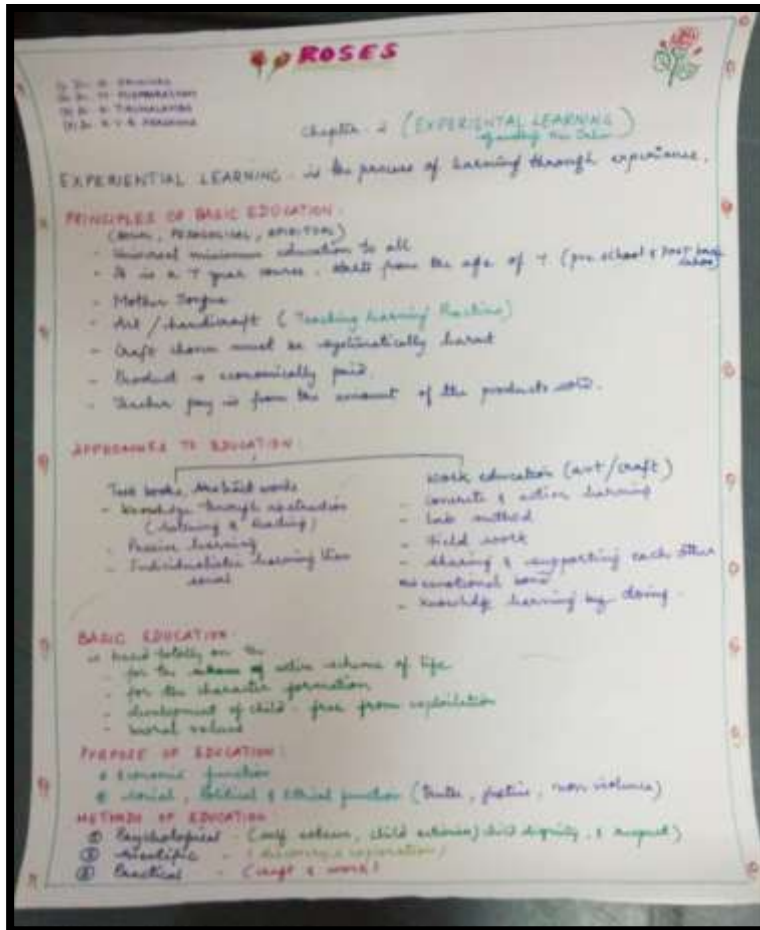 ROSES
Chapter - 2 (EXPERIENTIAL LEARNING
EXPERIENTIAL LEARNING - is the process of learning through experience.
PRINCIPLES OF BASIC EDUCATION:
- Universal minimum education to all
- It is a 7 year course. starts from the age of 7 (pre school &
- Mother Tongue
- Art / handicraft (Teaching learning Practice)
- Craft chosen must be systematically learnt
- Product economically paid.
- Teacher pay is from the amount of the products sold.
APPROACHES TO EDUCATION:
Text books, words
- Knowledge through abstraction
(listening & Reading)
- Passive learning
- Individualistic learning than
social
work education (art/craft)
- concrete & action learning
- Lab method
- Field work
- sharing & supporting each other
emotional bond
- knowledge learning by doing.
BASIC EDUCATION:
is based totally on the
- for the entire scheme of life
- for the character formation
- development of child - free from exploitation
- moral values
PURPOSE OF EDUCATION:
Economic function
social, Political & Ethical function (truth, justice, non violence)
METHODS OF EDUCATION
① Psychological - (self esteem, child dignity, & respect)
② scientific - (discovery & exploration)
③ Practical - (craft & work)